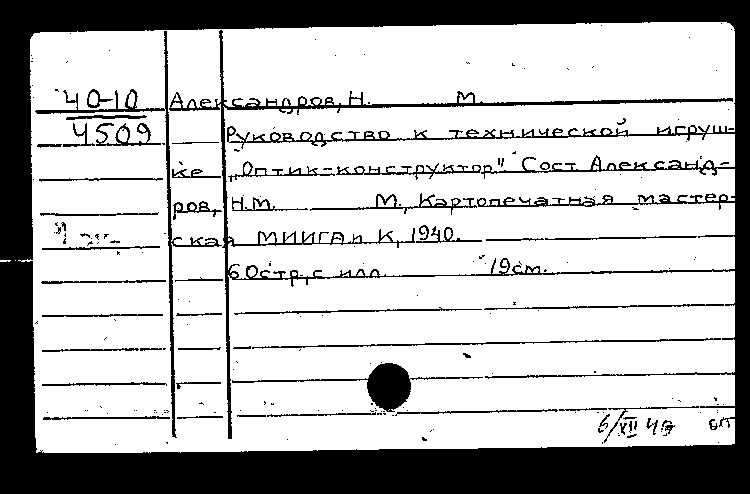 40-10 Александров, Н. М.
4509 Руководство к технической игруш-
ке "Оптик-конструктор" Сост Александ-
ров, Н.М. М., Картопечатная мастер-
ская МИИГАиК, 1940.
60стр, с илл. 19см.
6/XII 40